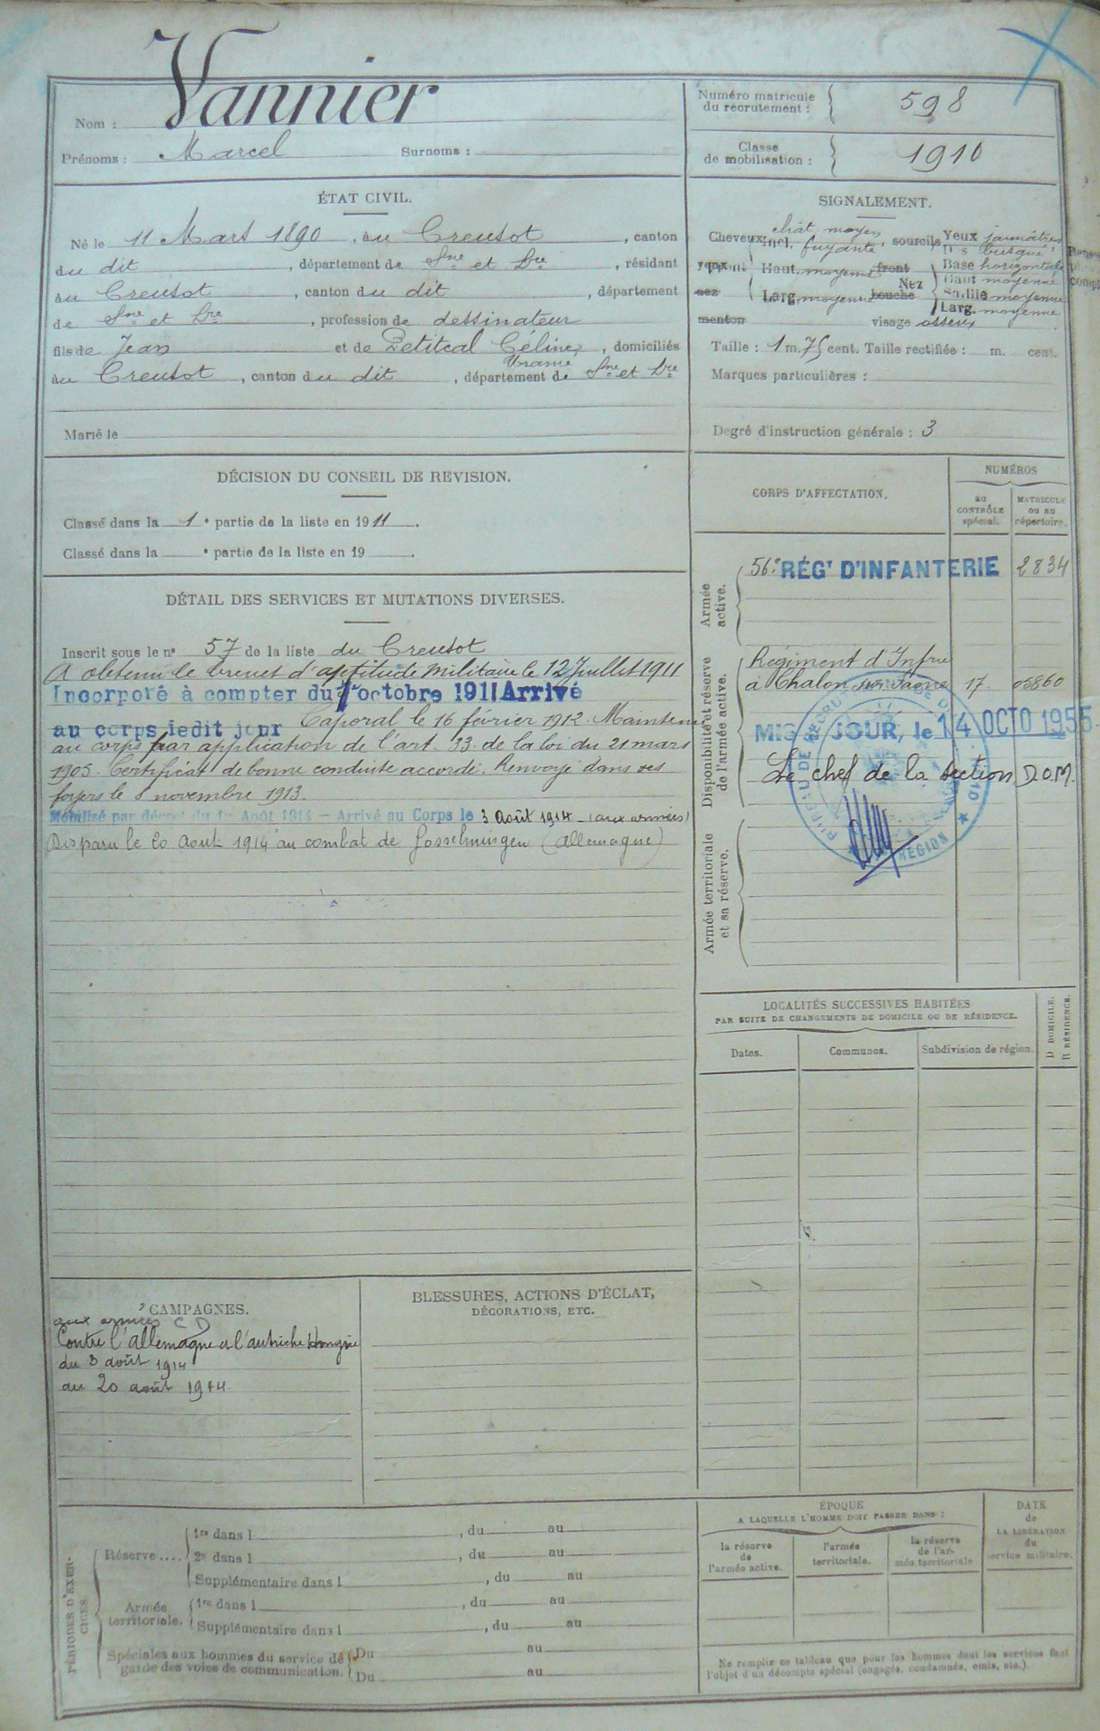 Nom : Vannier
Prénoms : Marcel Surnoms :
Numéro matricule
du recrutement : 598
Classe
de mobilisation : 1910
ÉTAT CIVIL.
Né le 11 Mars 1890, au Creusot, canton
du dit, département de Sne et Lre, résidant
au Creusot, canton du dit, département
de Sne et Lre, profession de dessinateur
fils de Jean et de Petitcal Céline, domiciliés
Uranie
au Creusot, canton du dit, département de Sne et Lre
Marié le
SIGNALEMENT.
Cheveux chât moyen
incl. fuyante, sourcils
Yeux jaunâtres
Dos busqué
yeux Front Haut. moyenne front
Base horizontale
Nez Haut moyenne
nez Larg. moyenne bouche
Saillie moyenne
Larg. moyenne
menton visage osseux
Taille : 1 m. 75 cent. Taille rectifiée : m. cent.
Marques particulières :
Degré d'instruction générale : 3
DÉCISION DU CONSEIL DE REVISION.
Classé dans la 1e partie de la liste en 1911.
Classé dans la e partie de la liste en 19 .
CORPS D'AFFECTATION.
NUMÉROS
AU
CONTRÔLE
spécial.
MATRICULE
OU AU
répertoire.
Armée
active.
56e RÉGt D'INFANTERIE 2834
Disponibilité et réserve
de l'armée active.
Régiment d'Infrie
à Chalon sur Saône 17 05860
MIS à JOUR, le 14 OCTO 1955
Le chef de la section D.O.M.
RÉGION
Armée territoriale
et sa réserve.
DÉTAIL DES SERVICES ET MUTATIONS DIVERSES.
Inscrit sous le no 57 de la liste du Creusot
A obtenu le brevet d'aptitude militaire le 12 Juillet 1911
Incorporé à compter du 1er octobre 1911 Arrivé
au corps ledit jour Caporal le 16 février 1912. Maintenu
au corps par application de l'art. 33 de la loi du 21 mars
1905. Certificat de bonne conduite accordé. Renvoyé dans ses
foyers le 8 novembre 1913.
Mobilisé par décret du 1er Août 1914 - Arrivé au Corps le 3 Août 1914 - (aux armées)
Disparu le 20 Août 1914 au combat de Gosselmingen (Allemagne)
LOCALITÉS SUCCESSIVES HABITÉES
PAR SUITE DE CHANGEMENTS DE DOMICILE OU DE RÉSIDENCE.
Dates. Communes. Subdivision de région.
D DOMICILE.
R RÉSIDENCE.
CAMPAGNES.
aux armées C D
Contre l'Allemagne et l'Autriche Hongrie
du 3 août 1914
au 20 août 1914
BLESSURES, ACTIONS D'ÉCLAT,
DÉCORATIONS, ETC.
PÉRIODES D'EXER-
CICES.
Réserve ....
1re dans l , du au
2e dans l , du au
Supplémentaire dans l , du au
Armée
territoriale.
1re dans l , du au
Supplémentaire dans l , du au
Spéciales aux hommes du service de
garde des voies de communication.
Du au
Du au
ÉPOQUE
A LAQUELLE L'HOMME DOIT PASSER DANS :
la réserve
de
l'armée active.
l'armée
territoriale.
la réserve
de l'ar-
mée territoriale
DATE
de
LA LIBÉRATION
du
service militaire.
Ne remplir ce tableau que pour les hommes dont les services font
l'objet d'un décompte spécial (engagés, condamnés, omis, etc.).